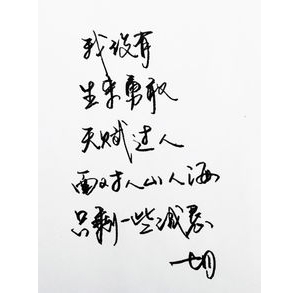 我没有
生来勇敢
天赋过人
面对人山人海
只剩一些诚恳
七月